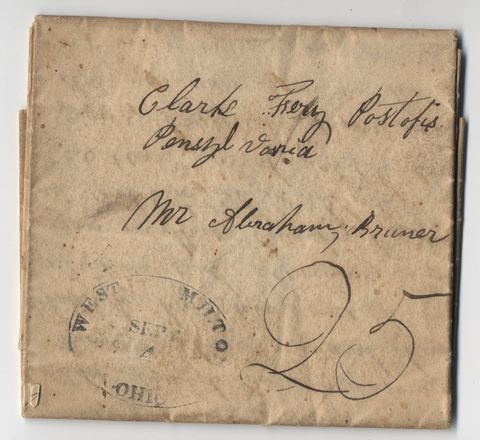 Clarke Fery Postofis
Pensylvania
Mr Abraham Bruner
25
WEST MILTO
SEP
OHIO